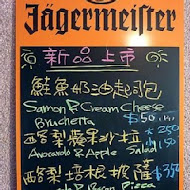 Jägermeister
新品上市
鮭魚奶油起司包
Samon & Cream Cheese
Bruchetta $150
酪梨蘋果沙拉 $250
Avocardo & Apple Salad
酪梨培根披薩 $350
Pizza